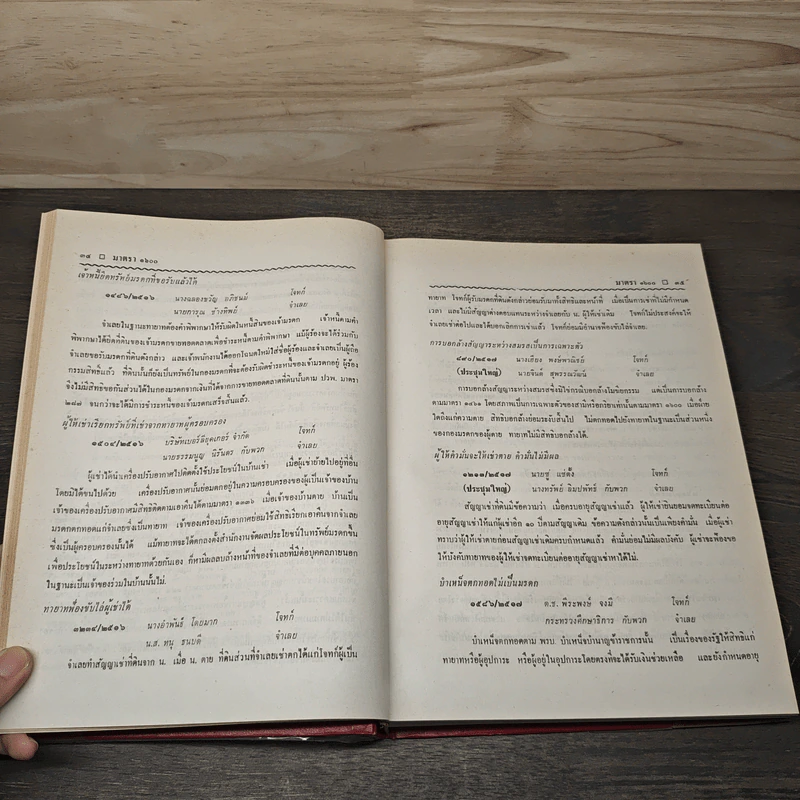 ๓๔ □ มาตรา ๑๖๐๐
เจ้าหนี้ยึดทรัพย์มรดกที่ขอรับแล้วได้
๑๔๘๖/๒๕๑๖ นางฉลองขวัญ อภัยชนม์ โจทก์
นายการุณ ช่างทิพย์ จำเลย
จำเลยในฐานะทายาทต้องคำพิพากษาให้รับผิดในหนี้สินของเจ้ามรดก เจ้าหนี้ตามคำ
พิพากษาได้ยึดที่ดินของเจ้ามรดกขายทอดตลาดเพื่อชำระหนี้ตามคำพิพากษา แม้ผู้ร้องจะได้ร่วมกับ
จำเลยขอรับมรดกที่ดินดังกล่าว และเจ้าพนักงานได้ออกโฉนดใหม่ใส่ชื่อผู้ร้องและจำเลยเป็นผู้ถือ
กรรมสิทธิ์แล้ว ที่ดินนั้นก็ยังเป็นทรัพย์ในกองมรดกที่จะต้องรับผิดชำระหนี้ของเจ้ามรดกอยู่ ผู้ร้อง
จึงไม่มีสิทธิขอกันส่วนได้ในกองมรดกจากเงินที่ได้จากการขายทอดตลาดที่ดินนั้นตาม ปวพ. มาตรา
๒๘๗ จนกว่าจะได้มีการชำระหนี้ของเจ้ามรดกเสร็จสิ้นแล้ว.
ผู้ให้เช่าเรียกทรัพย์ที่เช่าจากทายาทผู้ครอบครอง
๑๕๐๔/๒๕๑๖ บริษัทเบอร์ลี่ยุคเกอร์ จำกัด โจทก์
นายธรรมนูญ นิรันดร กับพวก จำเลย
ผู้เช่าได้นำเครื่องปรับอากาศไปติดตั้งใช้ประโยชน์ในบ้านเช่า เมื่อผู้เช่าย้ายไปอยู่ที่อื่น
โดยมิได้ขนไปด้วย เครื่องปรับอากาศนั้นย่อมตกอยู่ในความครอบครองของผู้เป็นเจ้าของบ้าน
เจ้าของเครื่องปรับอากาศมีสิทธิติดตามเอาคืนได้ตามมาตรา ๑๓๓๖ เมื่อเจ้าของบ้านตาย บ้านเป็น
มรดกตกทอดแก่จำเลยซึ่งเป็นทายาท เจ้าของเครื่องปรับอากาศย่อมใช้สิทธิเรียกเอาคืนจากจำเลย
ซึ่งเป็นผู้ครอบครองนั้นได้ แม้ทายาทจะได้ตกลงตั้งสำนักงานจัดผลประโยชน์ในทรัพย์มรดกขึ้น
เพื่อประโยชน์ในระหว่างทายาทด้วยกันเอง ก็หามีผลลบล้างหน้าที่ของจำเลยที่มีต่อบุคคลภายนอก
ในฐานะเป็นเจ้าของร่วมในบ้านนั้นไม่.
ทายาทฟ้องขับไล่ผู้เช่าได้
๓๒๓๔/๒๕๑๖ นางอำพันธ์ โดยมาก โจทก์
น.ส. หนู ธนบดี จำเลย
จำเลยทำสัญญาเช่าที่ดินจาก น. เมื่อ น. ตาย ที่ดินส่วนที่จำเลยเช่าตกได้แก่โจทก์ผู้เป็น
มาตรา ๑๖๐๐ □ ๓๕
ทายาท โจทก์ผู้รับมรดกที่ดินดังกล่าวย่อมรับมาทั้งสิทธิและหน้าที่ เมื่อเป็นการเช่าที่ไม่มีกำหนด
เวลา และไม่มีสัญญาต่างตอบแทนระหว่างจำเลยกับ น. ผู้ให้เช่าเดิม โจทก์ไม่ประสงค์จะให้
จำเลยเช่าต่อไปและได้บอกเลิกการเช่าแล้ว โจทก์ก็ย่อมมีอำนาจฟ้องขับไล่จำเลยได้.
การบอกล้างสัญญาระหว่างสมรสเป็นการเฉพาะตัว
๘๙๐/๒๕๑๗ นางเฮียง พงษ์พาณิชย์ โจทก์
(ประชุมใหญ่) นายจินต์ สุพรรณวัฒน์ จำเลย
การบอกล้างสัญญาระหว่างสมรสซึ่งมิใช่กรณีบอกล้างโมฆียกรรม แต่เป็นการบอกล้าง
ตามมาตรา ๑๔๖๑ โดยสภาพเป็นการเฉพาะตัวของสามีหรือภริยาเท่านั้นตามมาตรา ๑๖๐๐ เมื่อฝ่าย
ใดถึงแก่ความตาย สิทธิบอกล้างย่อมระงับสิ้นไป ไม่ตกทอดไปยังทายาทในฐานะเป็นส่วนหนึ่ง
ของกองมรดกของผู้ตาย ทายาทไม่มีสิทธิบอกล้างได้.
ผู้ให้คำมั่นจะให้เช่าตาย คำมั่นไม่มีผล
๑๒๑๓/๒๕๑๗ นายซู่ แซ่ตั้ง โจทก์
(ประชุมใหญ่) นางทรัพย์ ลิมปพัทธ์ กับพวก จำเลย
สัญญาเช่าที่ดินมีข้อความว่า เมื่อครบอายุสัญญาเช่าแล้ว ผู้ให้เช่ายินยอมจดทะเบียนต่อ
อายุสัญญาเช่าให้แก่ผู้เช่าอีก ๑๐ ปีตามสัญญาเดิม ข้อความดังกล่าวนั้นเป็นเพียงคำมั่น เมื่อผู้เช่า
ทราบว่าผู้ให้เช่าตายก่อนสัญญาเช่าเดิมครบกำหนดแล้ว คำมั่นย่อมไม่มีผลบังคับ ผู้เช่าจะฟ้องขอ
ให้บังคับทายาทของผู้ให้เช่าจดทะเบียนต่ออายุสัญญาเช่าหาได้ไม่.
บำเหน็จตกทอดไม่เป็นมรดก
๑๕๘๖/๒๕๑๗ ด.ช. พีระพงษ์ จงมี โจทก์
กระทรวงศึกษาธิการ กับพวก จำเลย
บำเหน็จตกทอดตาม พรบ. บำเหน็จบำนาญข้าราชการนั้น เป็นเรื่องของรัฐให้สิทธิแก่
ทายาทหรือผู้อุปการะ หรือผู้อยู่ในอุปการะโดยตรงที่จะได้รับเงินช่วยเหลือ และยังกำหนดอายุ